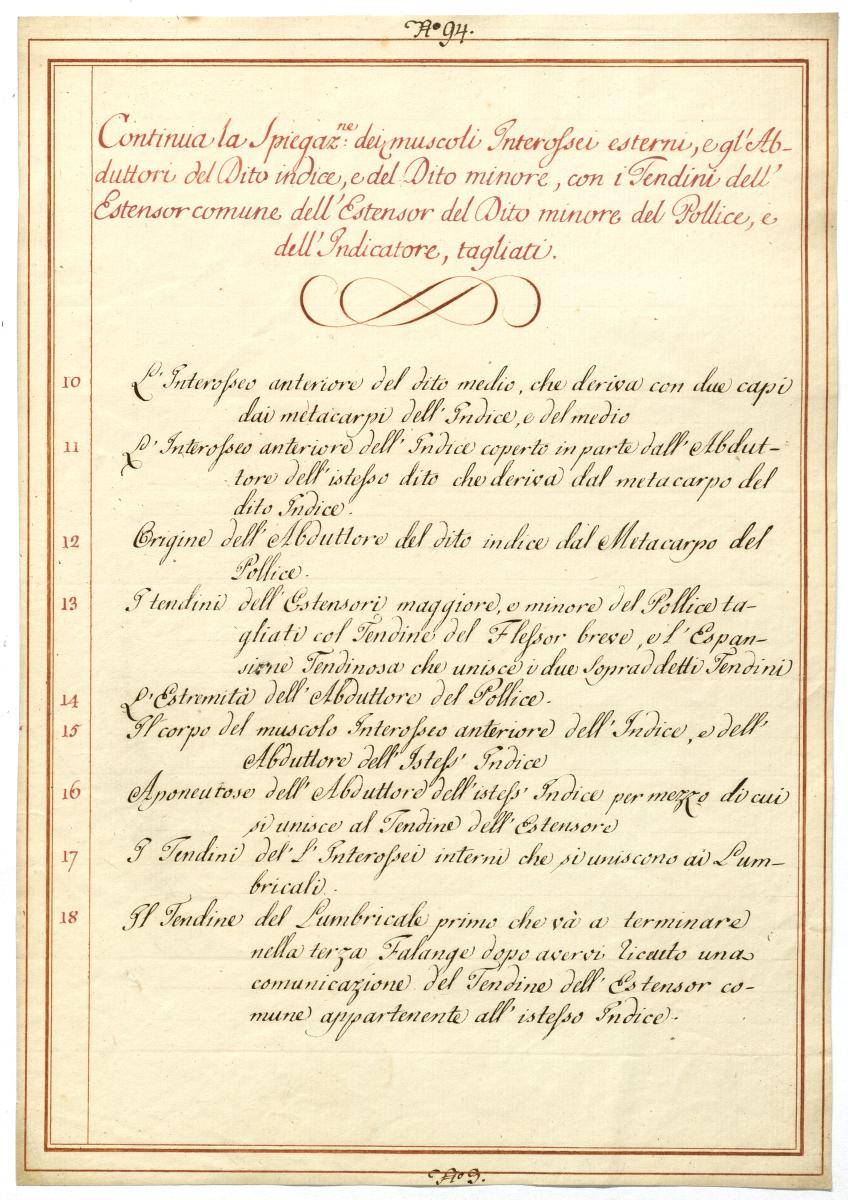 No 94.
Continua la Spiegaz.ne dei muscoli Interossei esterni, e gl'Ab-
duttori del Dito indice, e del Dito minore, con i Tendini dell'
Estensor comune dell'Estensor del Dito minore del Pollice, e
dell'Indicatore, tagliati.
10 L'Interosseo anteriore del dito medio, che deriva con due capi
dai metacarpi dell'Indice, e del medio
11 L'Interosseo anteriore dell'Indice coperto in parte dall'Abdut-
tore dell'istesso dito che deriva dal metacarpo del
dito Indice.
12 Origine dell'Abduttore del dito indice dal Metacarpo del
Pollice.
13 I tendini dell'Estensori maggiore, e minore del Pollice ta-
gliati col Tendine del Flessor breve, e l'Espan-
sione Tendinosa che unisce i due Sopraddetti Tendini
14 L'Estremità dell'Abduttore del Pollice.
15 Il corpo del muscolo Interosseo anteriore dell'Indice, e dell'
Abduttore dell'Istess' Indice
16 Aponeurose dell'Abduttore dell'istess' Indice per mezzo di cui
si unisce al Tendine dell'Estensore
17 I Tendini del'l'Interossei interni che si uniscono ai Lum-
bricali.
18 Il Tendine del Lumbricale primo che và a terminare
nella terza Falange dopo avervi ricauto una
comunicazione del Tendine dell'Estensor co-
mune appartenente all'istesso Indice.
No 3.